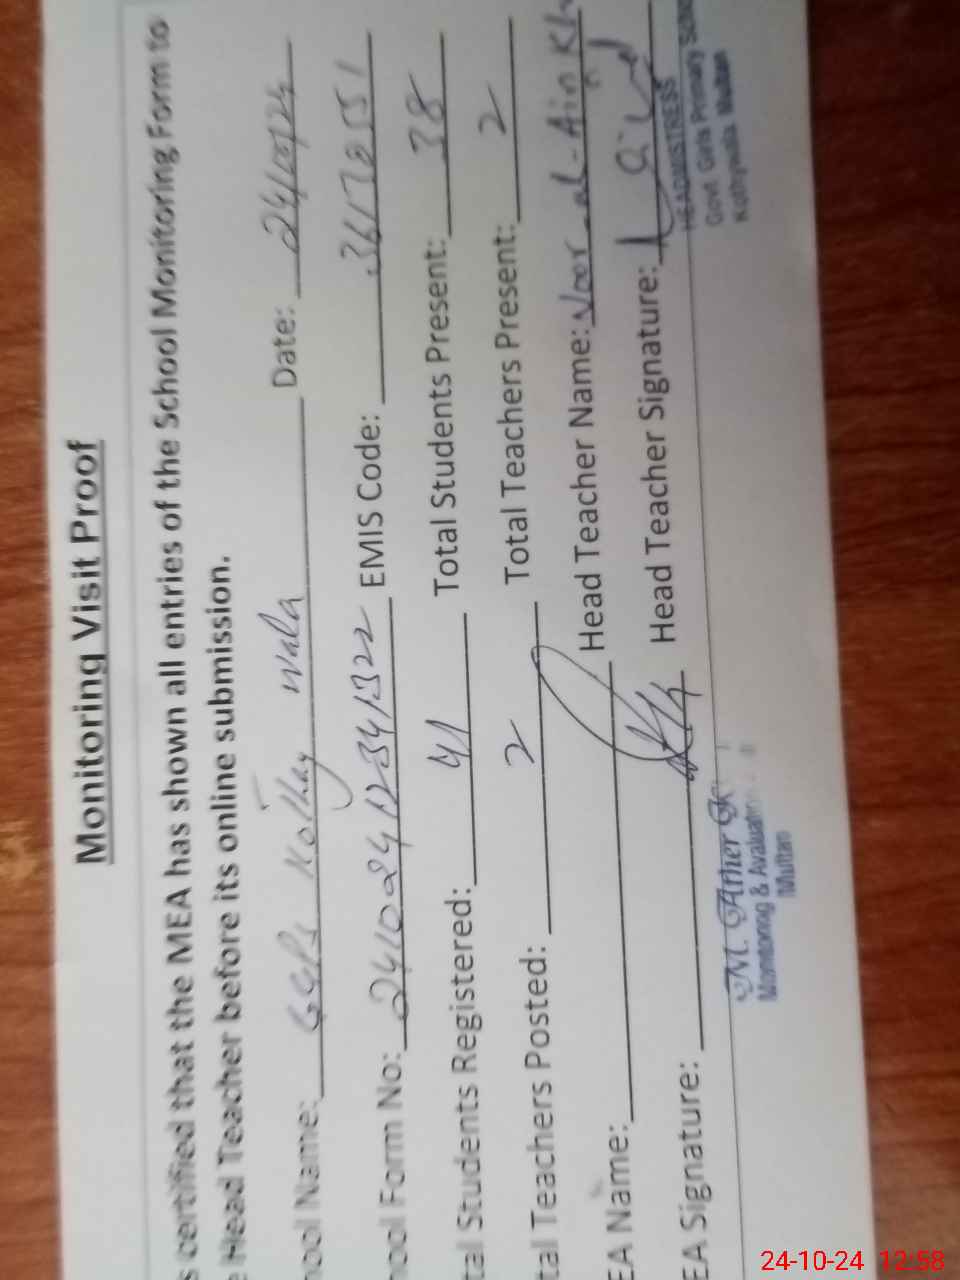 Monitoring Visit Proof
s certified that the MEA has shown all entries of the School Monitoring Form to
e Head Teacher before its online submission.
hool Name: GGPS Kothay wala Date: 24/10/24
hool Form No: 241024123411322 EMIS Code:
tal Students Registered: 41 Total Students Present: 38
tal Teachers Posted: 2 Total Teachers Present: 2
EA Name: Head Teacher Name: Noor-ul-Ain
EA Signature: Head Teacher Signature:
M. Ather
Monitoring & Avaluation
Multan
HEADMISTRESS
Govt. Girls Primary Schoo
Kothywala Multan
24-10-24 12:58